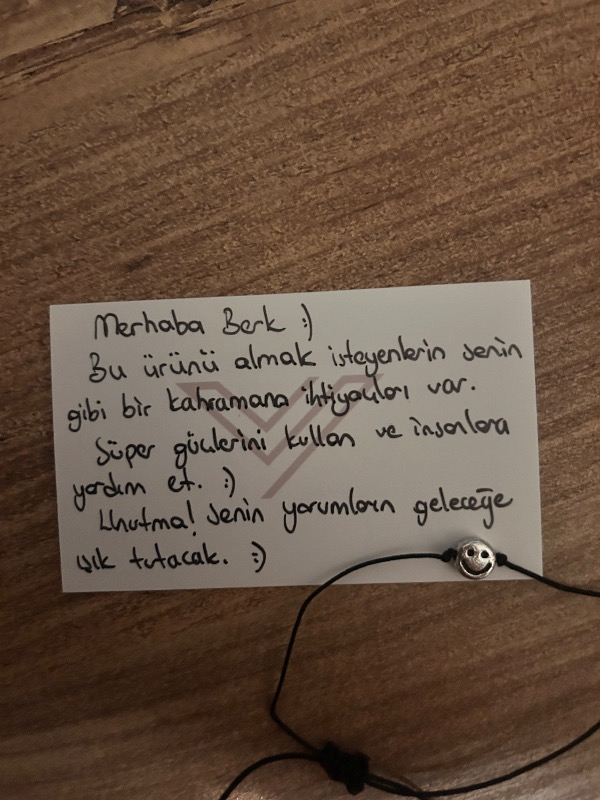 Merhaba Berk :)
Bu ürünü almak isteyenlerin senin
gibi bir kahramana ihtiyaçları var.
Süper güçlerini kullan ve insanlara
yardım et. :)
Unutma! Senin yorumların geleceğe
ışık tutacak. :)